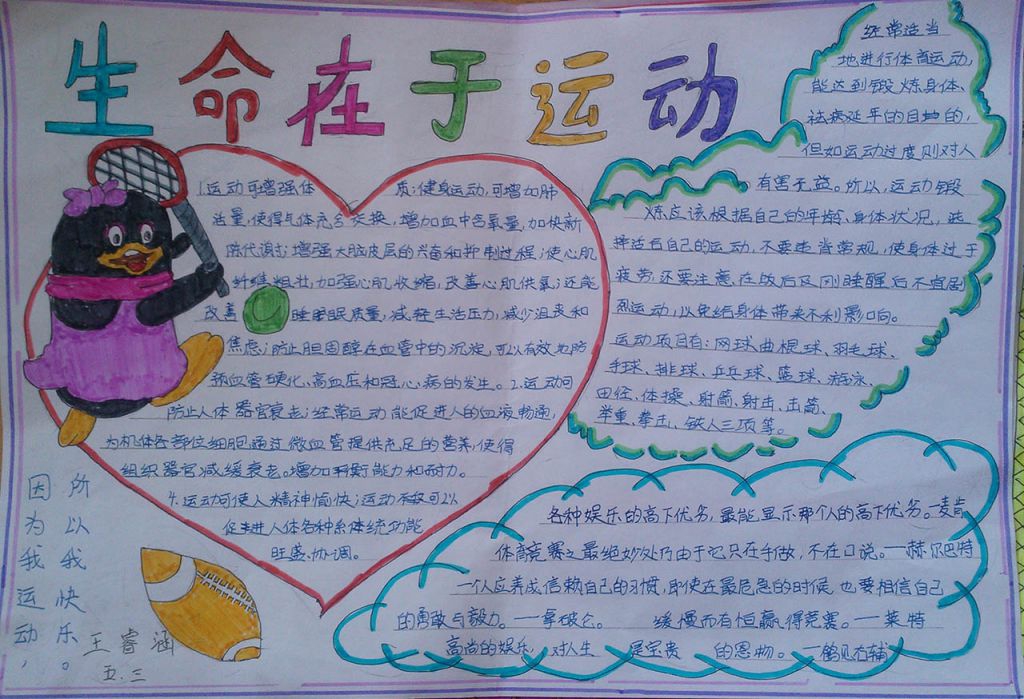 生命在于运动
1.运动可增强体质:健身运动,可增加肺
活量,使得气体充分交换,增加血中含氧量,加快新
陈代谢;增强大脑皮层的兴奋和抑制过程;使心肌
纤维粗壮,加强心肌收缩,改善心肌供氧;还能
改善睡眠质量,减轻生活压力,减少沮丧和
焦虑;防止胆固醇在血管中的沉淀,可以有效地防
预血管硬化、高血压和冠心病的发生。2.运动可
防止人体器官衰老;经常运动能促进人的血液畅通,
为机体各部位细胞通过微血管提供充足的营养,使得
组织器官减缓衰老。增加平衡能力和耐力。
4.运动可使人精神愉快;运动不仅可以
促进人体各种系体统功能
旺盛、协调。
经常适当
地进行体育运动,
能达到锻炼身体、
祛病延年的目地的,
但如运动过度则对人
有害无益。所以,运动锻
炼应该根据自己的年龄、身体状况,选
择适合自己的运动,不要违背常规,使身体过于
疲劳,还要注意,在饭后及刚睡醒后不宜剧
烈运动,以免给身体带来不利影响。
运动项目有:网球、曲棍球、羽毛球、
手球、排球、乒乓球、篮球、游泳、
田径、体操、射箭、射击、击剑、
举重、拳击、铁人三项等。
各种娱乐的高下优劣,最能显示那个人的高下优劣。—麦肯
体育竞赛之最绝妙处乃由于它只在手做,不在口说。—赫尔巴特
一个人应养成信赖自己的习惯,即使在最危急的时候,也要相信自己
的勇敢与毅力。—拿破仑。 缓慢而有恒赢得竞赛。—莱特
高尚的娱乐,对人生是宝贵的恩物。—鹤见右辅
因为我运动,
所以我快乐。
王睿涵
五.三